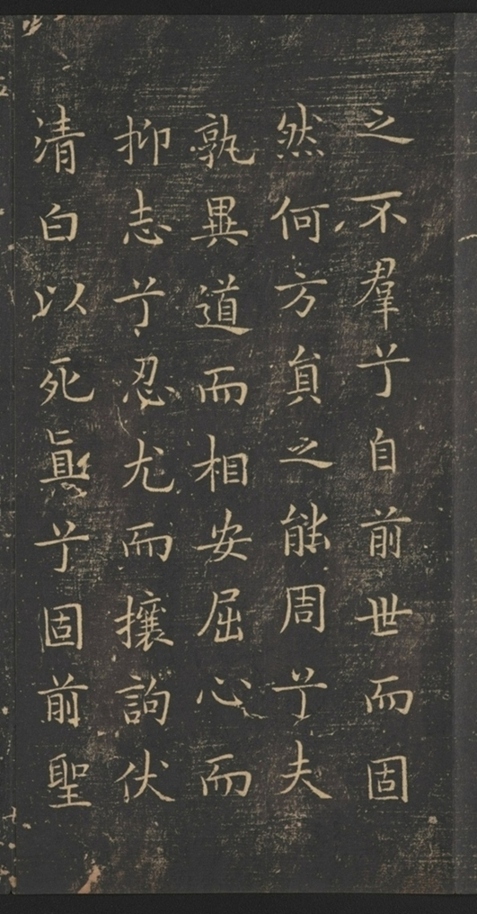 之不羣兮自前世而固
然何方員之能周兮夫
孰異道而相安屈心而
抑志兮忍尤而攘訽伏
清白以死直兮固前聖